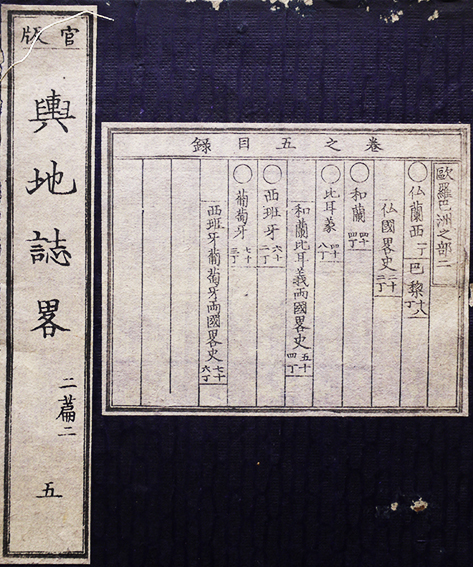 官版
輿地誌畧
二篇二
五
巻之五目録
歐羅巴洲之部二
○仏蘭西 一丁 巴黎 十八丁
仏國畧史 二十二丁
○和蘭 四十四丁
○比耳義 四十八丁
和蘭比耳義両國畧史 五十四丁
○西班牙 六十二丁
○葡萄牙 七十三丁
西班牙葡萄牙両國畧史 七十六丁